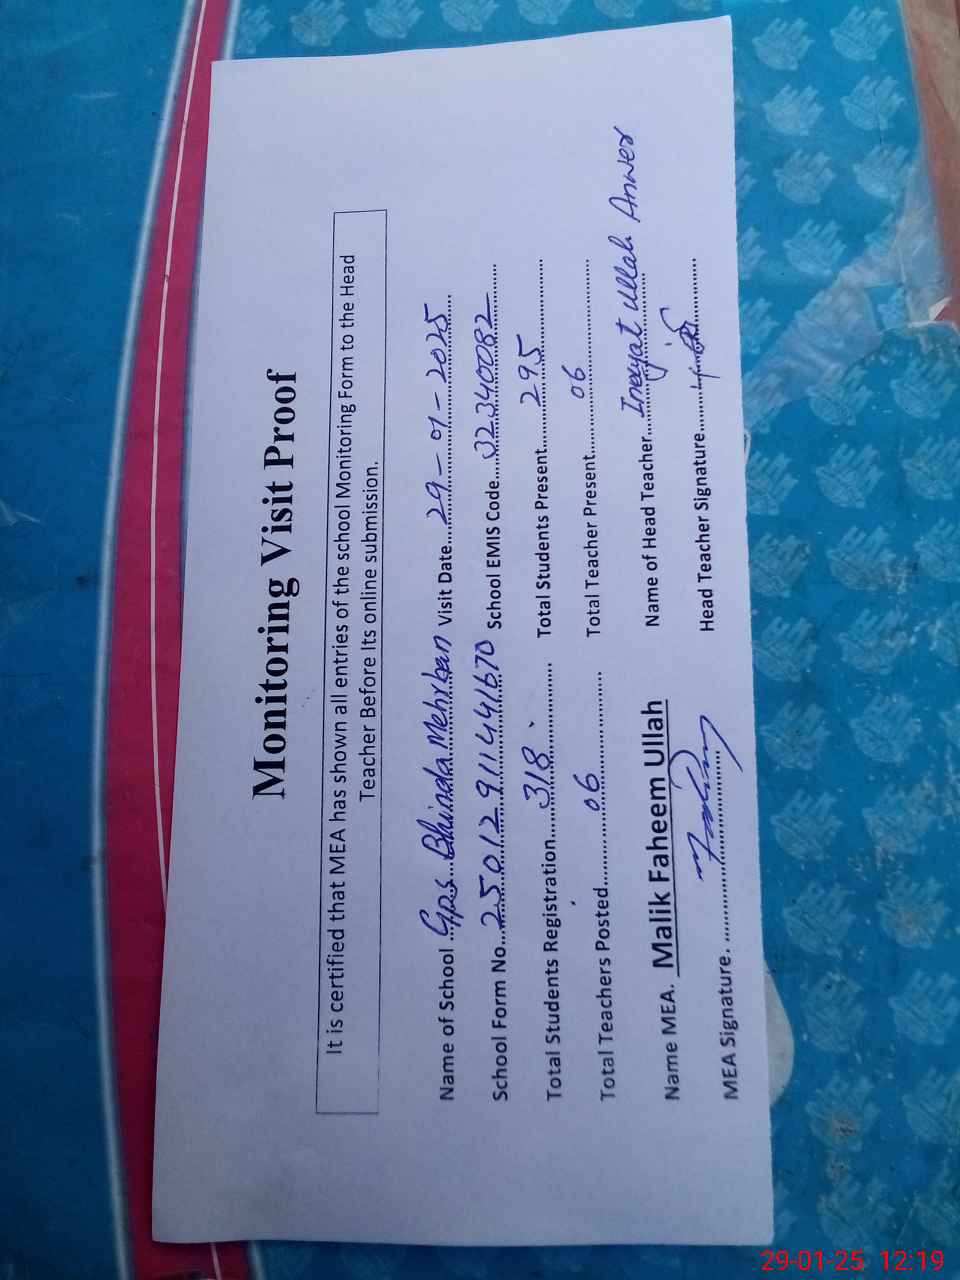 Monitoring Visit Proof
It is certified that MEA has shown all entries of the school Monitoring Form to the Head
Teacher Before Its online submission.
Name of School ...Gps Bhinda Mehrban Visit Date.....29-01-2025
School Form No...25012911441670 School EMIS Code....32340082
Total Students Registration......318 Total Students Present.......295
Total Teachers Posted..........06 Total Teacher Present.........06
Name MEA. Malik Faheem Ullah Name of Head Teacher....Inayat Ullah Anwer
MEA Signature. Head Teacher Signature
29-01-25 12:19